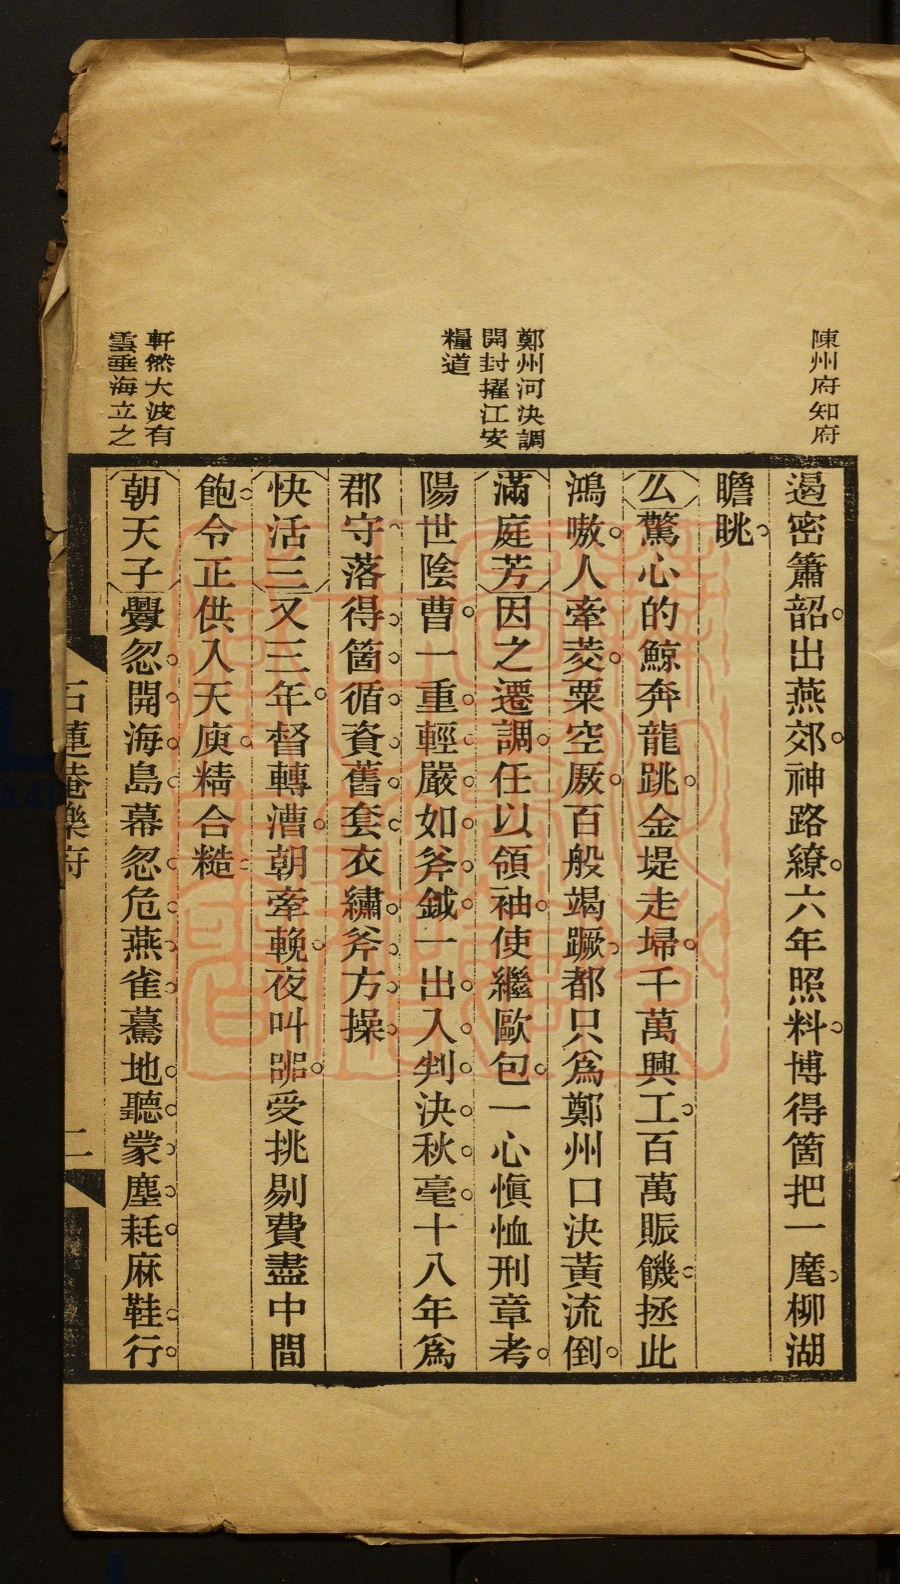 陳州府知府
遏密簫韶出燕郊神路繚六年照料博得箇把一麾柳湖
瞻眺
么驚心的鯨奔龍跳金堤走埽千萬興工百萬賑饑拯此
鴻嗷人牽菱粟空厫百般竭蹶都只爲鄭州口決黃流倒
鄭州河决調
開封擢江安
糧道
滿庭芳因之遷調任以領袖使繼歐包一心愼恤刑章考
陽世陰曹一重輕嚴如斧鉞一出入判決秋毫十八年爲
郡守落得箇循資舊套衣繡斧方操
快活三又三年督轉漕朝牽輓夜叫嘂受挑剔費盡中間
飽令正供入天庾精合糙
軒然大波有
雲垂海立之
朝天子釁忽開海島幕忽危燕雀驀地聽蒙塵耗麻鞋行
石蓮菴樂府
二